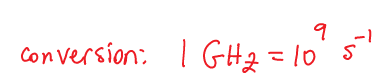 conversion: 1 GHz = 10⁹ s⁻¹